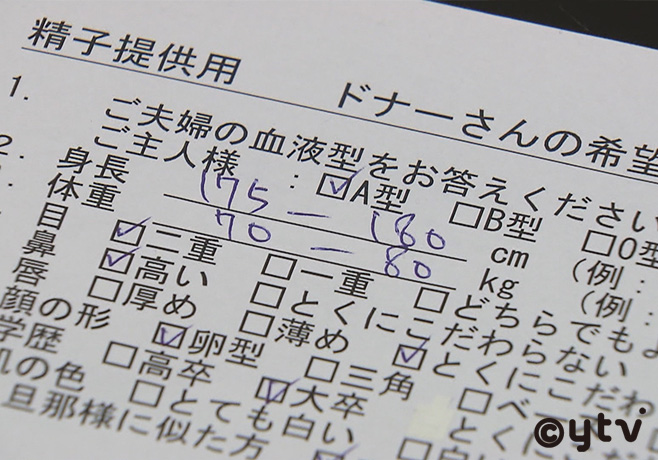 精子提供用 ドナーさんの希望
1. ご夫婦の血液型をお答えください
ご主人様 : ☑A型 □B型 □O型
2. 身長 175 — 180 cm (例:
体重 70 — 80 kg (例:
目 ☑二重 □一重 □どちらでもよ
鼻 ☑高い □とくにこだわらない
唇 □厚め □薄め ☑とくにこだわ
顔の形 ☑卵型 □三角 □ベー
学歴 □高卒 ☑大卒 □とくに
肌の色 □とても白い
旦那様に似た方
©ytv